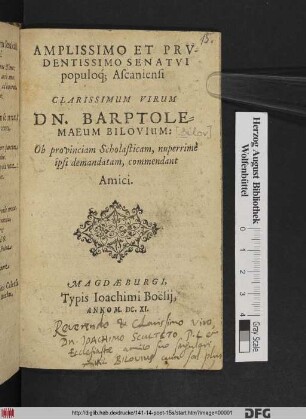 15.
AMPLISSIMO ET PRV-
DENTISSIMO SENATVI
populoq; Ascaniensi
CLARISSIMUM VIRUM
DN. BARPTOLE-
MAEUM BILOVIUM:
Ob provinciam Scholasticam, nuperrimè
ipsi demandatam, commendant
Amici.
MAGDÆBURGI,
Typis Ioachimi Boëlij,
ANNO M. DC. XI.
Reverendo & Clarissimo Viro,
Dn. JOACHIMO SCULTETO, P. L. &
amico suo
BILOVIUS
Herzog August Bibliothek
Wolfenbüttel
Gray Scale
http://diglib.hab.de/drucke/141-14-poet-15s/start.htm?image=00001
DFG